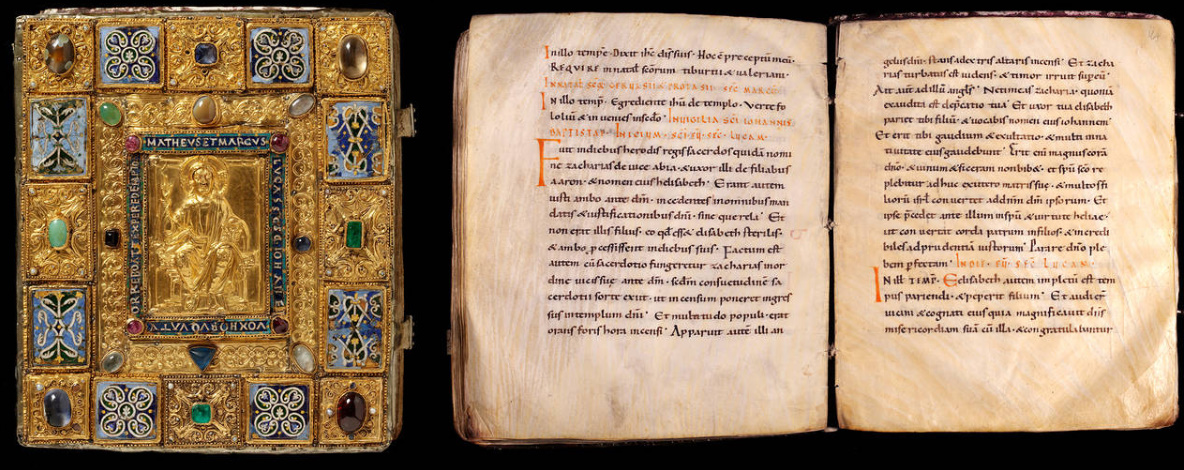 MATHEVS ET MARCVS
LVCAS S
VOX HORV QVATV
OR REDOAT EXPEREDEMPTI
In illo tempr̄e · Dixit ihc̄ discipulis suis · Hoc ē preceptum meū ·
REQVIRE in natał scōrum tiburtii & ualeriani ·
IN NATAL SCŌR GERVASII & PROTASII · SEC̄ MARCV̄
In illo temp̄r · Egrediente ihū de templo · Verte fo
lolū & inuenies infedo · IN VIGILIA SC̄I IOHANNIS
BAPTISTAE · INICIUM · SC̄I EV̄ · SEC̄ LVCAM ·
Fuit in diebus herodis regis sacerdos quidā nomi
ne zacharias de uice abia · & uxor illi de filiabus
aaron · & nomen eius helisabeth · Erant autem
iusti ambo ante dm̄ · incedentes in omnibus man
datis & iustificationibus dn̄i · sine querela · Et
non erat illis filius · eo qd̄ ess& elisabeth sterilis ·
& ambo pcessissent in diebus suis · Factum est
autem cū sacerdotio fungeretur zacharias in or
dine uicis suę · ante dm̄ · scđm consuetudinē sa
cerdotii sorte exiit · ut incensum poneret ingres
sus in templum dn̄i · Et multitudo populi · erat
orans foris hora incensi · Apparuit autē illi an
gelus dn̄i · stans a dextris altaris incensi · Et zacha
rias turbatus est uidens · & timor irruit sup eū ·
Ait aūt ad illū angłs · Ne timeas zacharia · quoniā
exaudita est depcatio tua · Et uxor tua elisabeth
pariet tibi filiū · & uocabis nomen eius iohannem ·
Et erit tibi gaudium & exultatio · & multi in na
tiuitate eius gaudebunt · Erit enī magnus corā
dn̄o · & uinum & siceram non bib& · et sp̄u scō re
plebitur adhuc ex utero matris suę · & multos fi
liorū isrł conuertet ad dn̄m dm̄ ipsorum · Et
ipse p̄cedet ante illum in sp̄u & uirtute heliae ·
ut conuertat corda patrum in filios · & incredi
biles ad prudentiā iustorum · Parare dn̄o ple
bem pfectam · IN DIE · EV̄ · SEC̄ LVCAN ·
IN ILŁ TEMP̄R · Elisabeth autem impletū est tem
pus pariendi · & peperit filium · Et audier̄
uicini & cognati eius quia magnificauit dn̄s
misericordiam suā cū illa · & congratulabantur